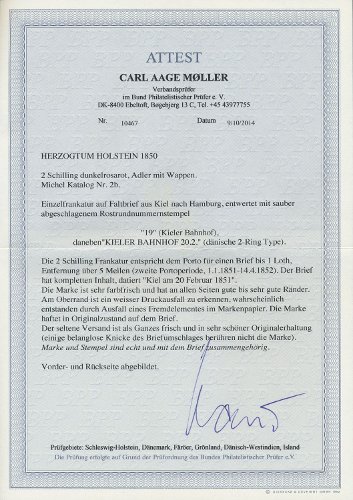 ATTEST
CARL AAGE MØLLER
Verbandsprüfer
im Bund Philatelistischer Prüfer e.V.
DK-8400 Ebeltoft, Bøgebjerg 13 C, Tel. +45 43977755
Nr. 10467 Datum 9/10/2014
HERZOGTUM HOLSTEIN 1850
2 Schilling dunkelrosarot, Adler mit Wappen.
Michel Katalog Nr. 2b.
Einzelfrankatur auf Faltbrief aus Kiel nach Hamburg, entwertet mit sauber
abgeschlagenem Rostrundnummernstempel
"19" (Kieler Bahnhof),
daneben"KIELER BAHNHOF 20.2." (dänische 2-Ring Type).
Die 2 Schilling Frankatur entspricht dem Porto für einen Brief bis 1 Loth,
Entfernung über 5 Meilen (zweite Portoperiode, 1.1.1851-14.4.1852). Der Brief
hat kompletten Inhalt, datiert "Kiel am 20 Februar 1851".
Die Marke ist sehr farbfrisch und hat an allen Seiten gute bis sehr gute Ränder.
Am Oberrand ist ein weisser Druckausfall zu erkennen, wahrscheinlich
entstanden durch Ausfall eines Fremdelementes im Markenpapier. Die Marke
haftet in Originalzustand auf dem Brief.
Der seltene Versand ist als Ganzes frisch und in sehr schöner Originalerhaltung
(einige belanglose Knicke des Briefumschlages berühren nicht die Marke).
Marke und Stempel sind echt und mit dem Brief zusammengehörig.
Vorder- und Rückseite abgebildet.
Prüfgebiete: Schleswig-Holstein, Dänemark, Färöer, Grönland, Dänisch-Westindien, Island
Die Prüfung erfolgte auf Grund der Prüfordnung des Bundes Philatelistischer Prüfer e.V.